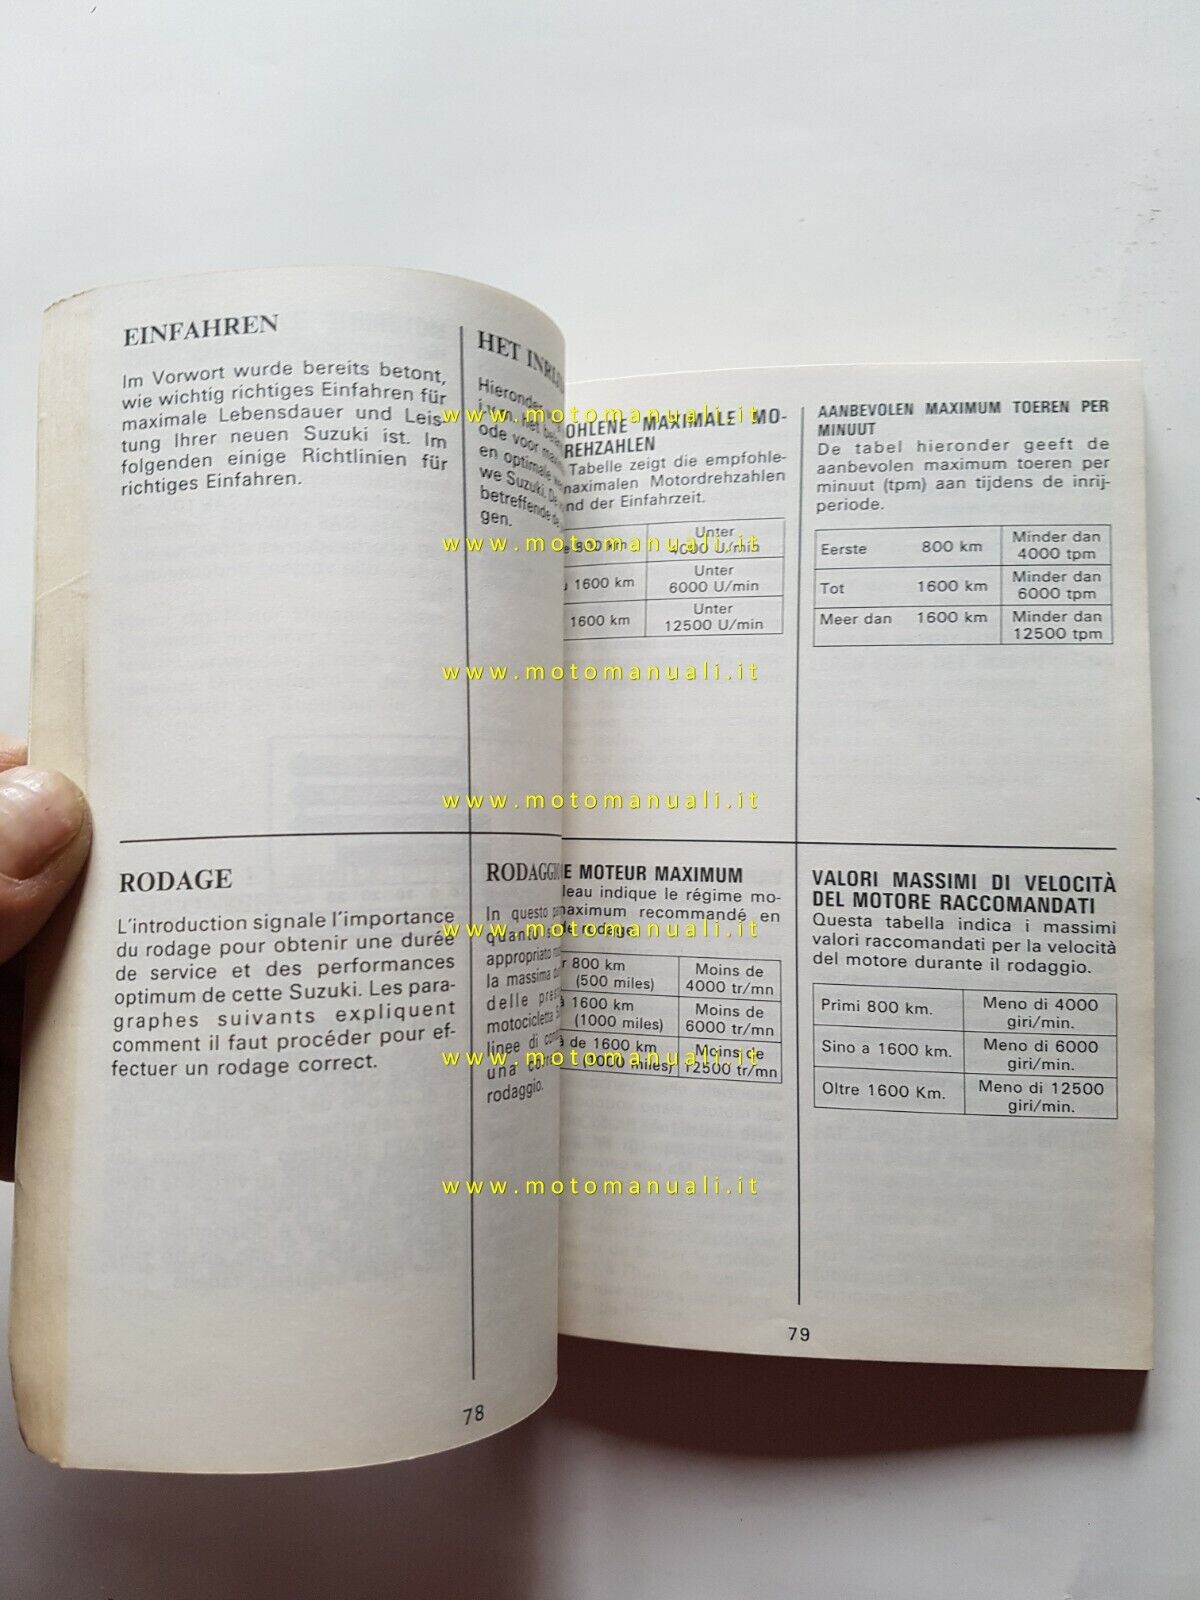 EINFAHREN
Im Vorwort wurde bereits betont,
wie wichtig richtiges Einfahren für
maximale Lebensdauer und Leis-
tung Ihrer neuen Suzuki ist. Im
folgenden einige Richtlinien für
richtiges Einfahren.
HET
Hieronder
ode voor
en optimale
we Suzuki. De
betreffende de
gen.
RODAGE
L'introduction signale l'importance
du rodage pour obtenir une durée
de service et des performances
optimum de cette Suzuki. Les para-
graphes suivants expliquent
comment il faut procéder pour ef-
fectuer un rodage correct.
RODAGGIO
In questo
quanto
appropriato
la massima
delle
motocicletta
linee di
una
rodaggio.
78
OHLENE MAXIMALE MO-
REHZAHLEN
Tabelle zeigt die empfohle-
maximalen Motordrehzahlen
nd der Einfahrzeit.
800 km Unter
4000 U/min
1600 km Unter
6000 U/min
1600 km Unter
12500 U/min
AANBEVOLEN MAXIMUM TOEREN PER
MINUUT
De tabel hieronder geeft de
aanbevolen maximum toeren per
minuut (tpm) aan tijdens de inrij-
periode.
Eerste 800 km Minder dan
4000 tpm
Tot 1600 km Minder dan
6000 tpm
Meer dan 1600 km Minder dan
12500 tpm
E MOTEUR MAXIMUM
leau indique le régime mo-
maximum recommandé en
de rodage.
r 800 km Moins de
(500 miles) 4000 tr/mn
à 1600 km Moins de
(1000 miles) 6000 tr/mn
de 1600 km Moins de
(1000 miles) 12500 tr/mn
VALORI MASSIMI DI VELOCITÀ
DEL MOTORE RACCOMANDATI
Questa tabella indica i massimi
valori raccomandati per la velocità
del motore durante il rodaggio.
Primi 800 km. Meno di 4000
giri/min.
Sino a 1600 km. Meno di 6000
giri/min.
Oltre 1600 Km. Meno di 12500
giri/min.
79
www.motomanuali.it
www.motomanuali.it
www.motomanuali.it
www.motomanuali.it
www.motomanuali.it
www.motomanuali.it
www.motomanuali.it